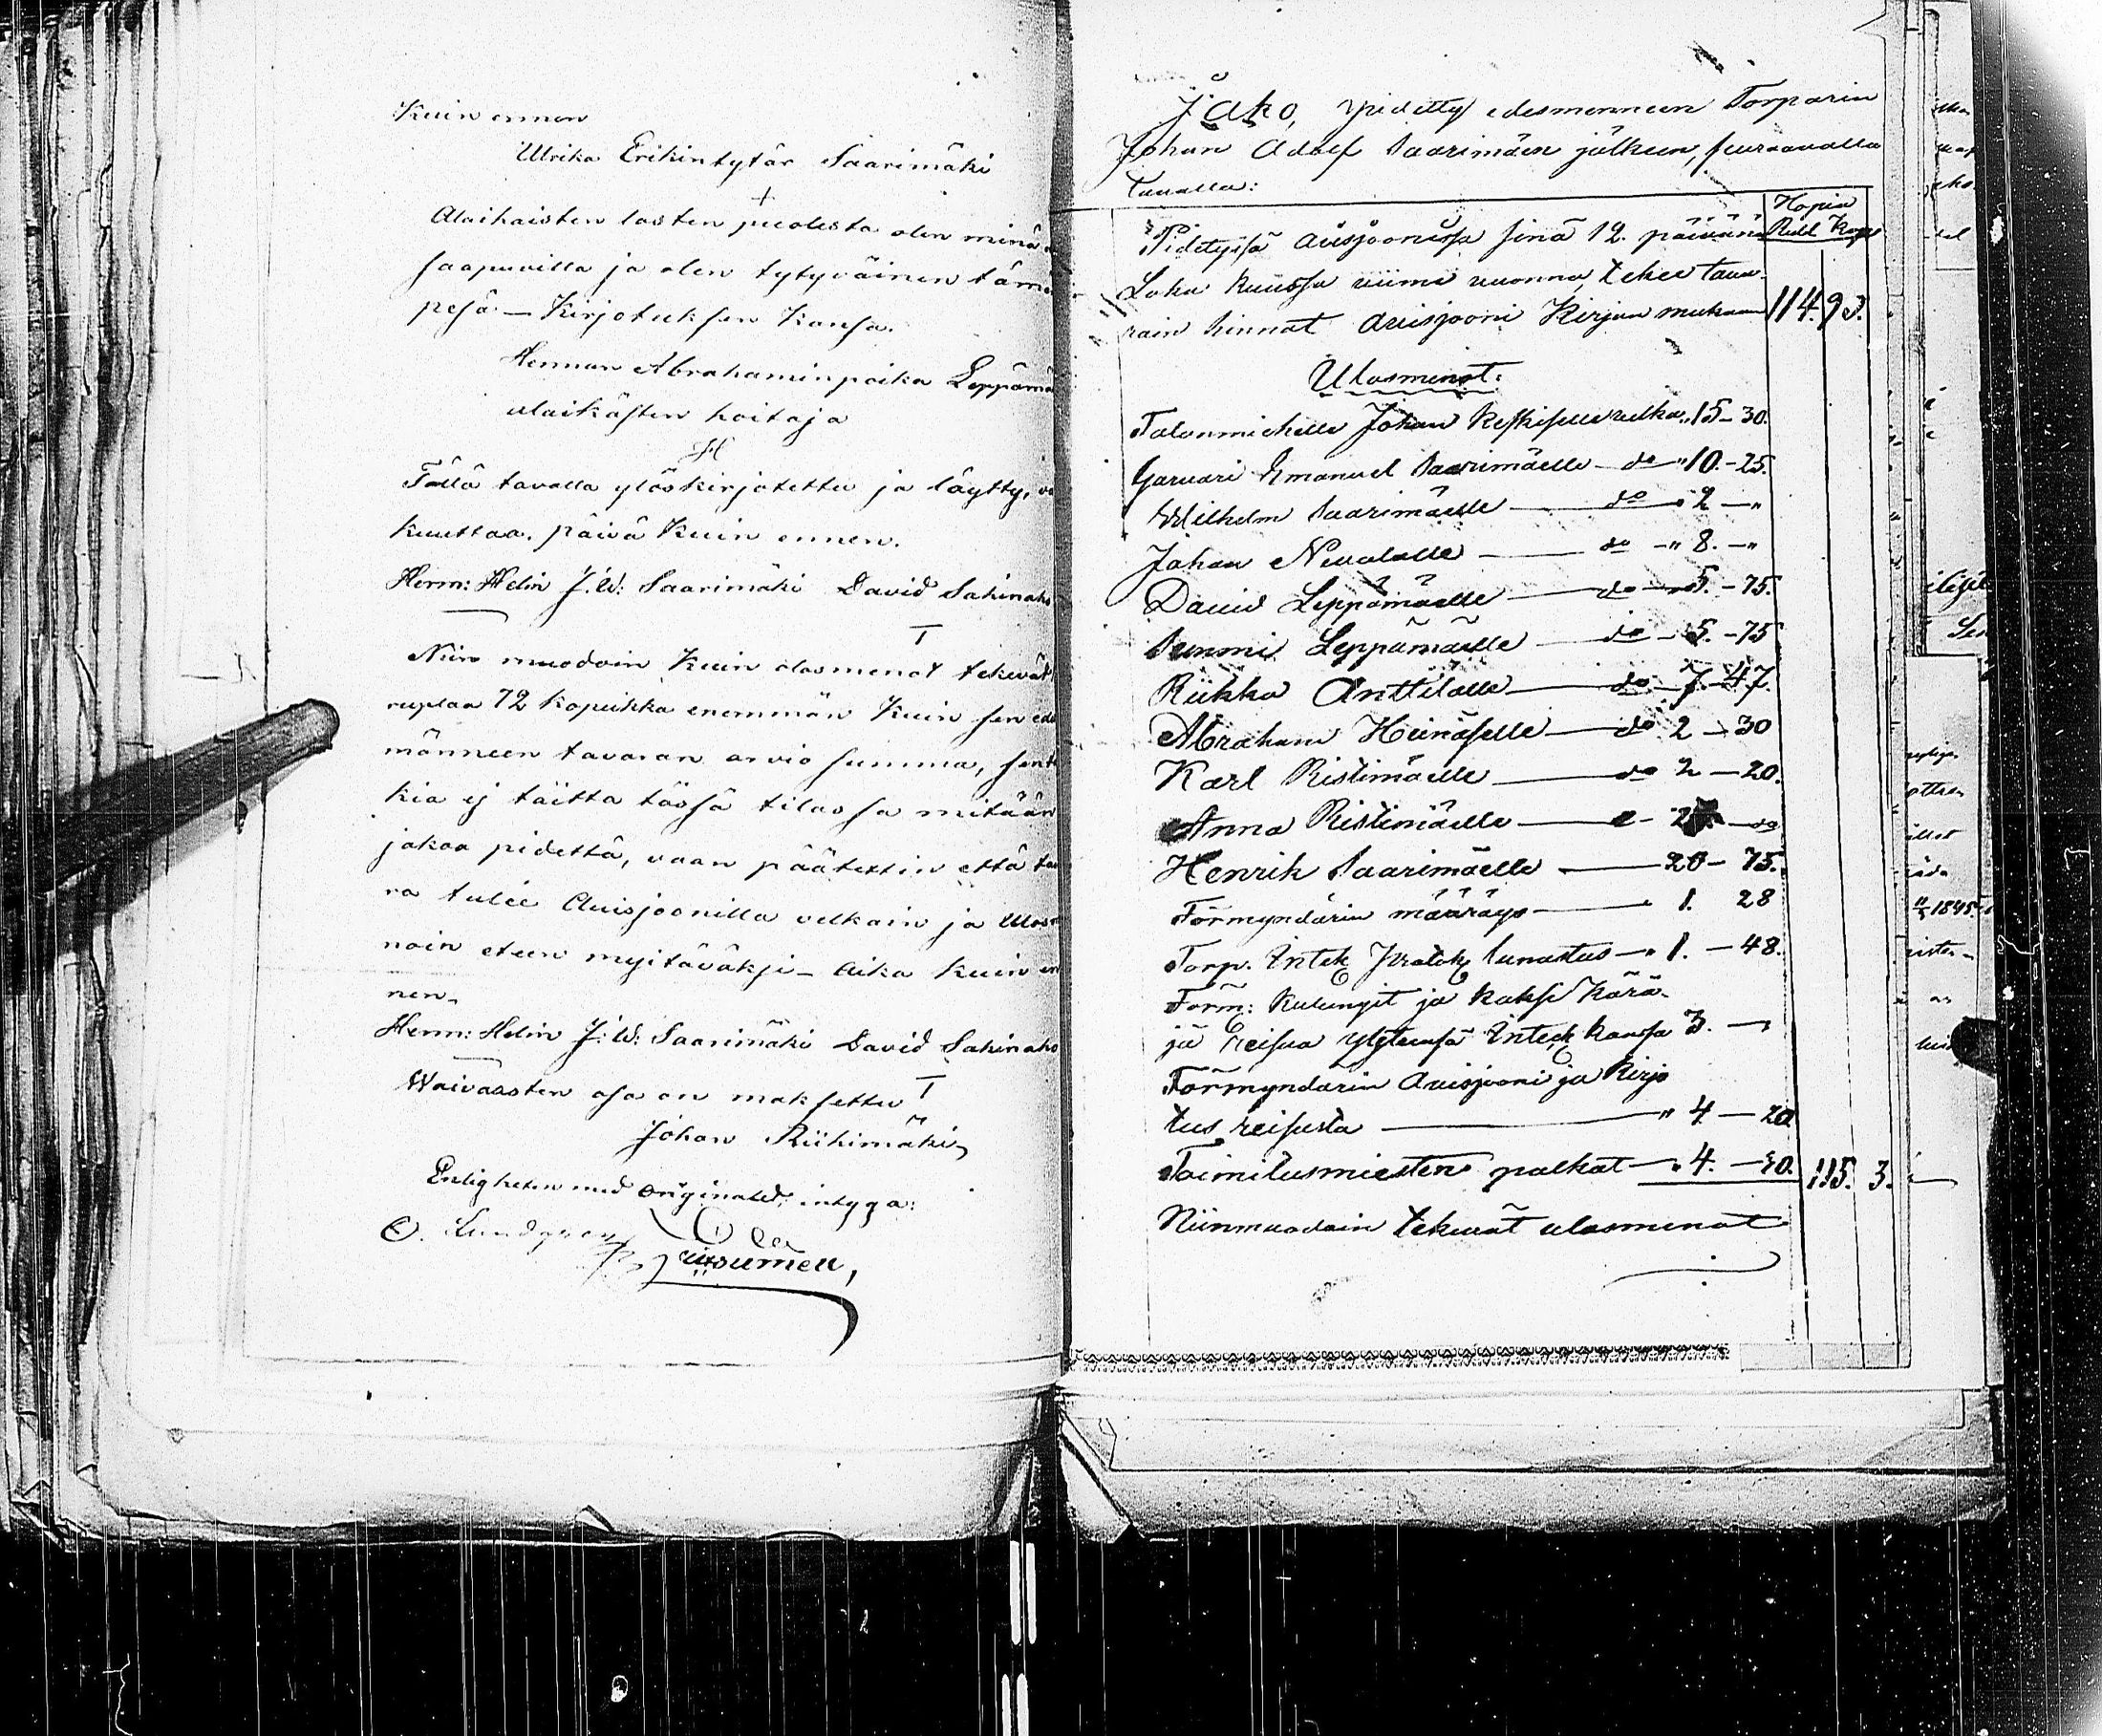 Kuin ennen
Ulrika Erikintytär Saarimäki
+
Alaikaisten lasten puolesta olen minä
saapuvilla ja olen tytyväinen täm
pesä - Kirjotuksen Kansa.
Herman Abrahaminpoika Leppämä
alaikästen hoitaja
H
Tällä tavalla ylöskirjotettu ja läytty, va
kuuttaa. päivä Kuin ennen.
Herm: Helin J.W: Saarimäki David Sakinaho
T
Niin muodoin Kuin olosmenot tekevät
ruplaa 72 Kopeikka enemmän Kuin sen ede
männeen tavaran arvio summa, sent
kia ej täitta tässä tilassa mitään
jakoa pidettä, vaan päätettin että tav
ra tulee Auisjoonilla velkain ja Ulosm
noin eteen myitäväksi - Aika Kuin en
nen.
Herm: Helin J:W: Saarimäki David Sakinaho
T
Waivaasten osa on maksettu
Johan Riihimäki
Enligheten med originalet, intyga:
O. Lundgren

Jako, pidetty edesmenneen Torparin
Johan Adolf Saarimäen jälkeen, seuraavalla
tavalla:
Hopia
Rubl Kop
Pidetyssä auisjoonissa sinä 12. päivänä
Loka kuussa viime vuonna, tekee tava-
rain hinnat Auisjooni Kirjan mukaan 114. 93.
Ulosmenot:
Talonmiehelle Johan Keskiselle velka „ 15-30.
Emanuel Saarimäelle - do - „ 10.-25.
Wilhelm Saarimäelle - do - 2 - „
Johan Nevalalle - do - „ 8. - „
David Leppämäelle - do - 5. - 75.
Summi Leppämäelle - do - 5. - 75
Riikka Anttilalle - do - 7 - 47.
Abraham Heinäselle - do 2 - 30
Karl Ristimäelle - do 2 - 20.
Anna Ristimäelle
Henrik Saarimäelle - 20 - 75.
Förmyndärin määräys - 1. 28
Torp. Intek lunastus - „ 1. - 48.
Förm: Kulungit ja kaksi Kärä-
jä Reisua Inteck kansa 3. -
Förmyndärin Auisjooni ja Kirjo
tus reisusta - „ 4 - 20
Toimitusmiesten palkat - „ 4. - 30. 115. 3.
Niinmuodoin tekevät ulosmenot